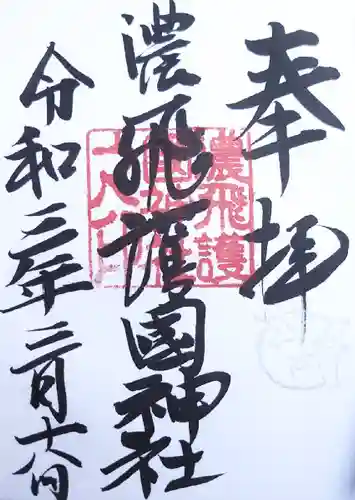 奉拝
濃飛護國神社
濃飛護
國神社
令和三年三月十八日